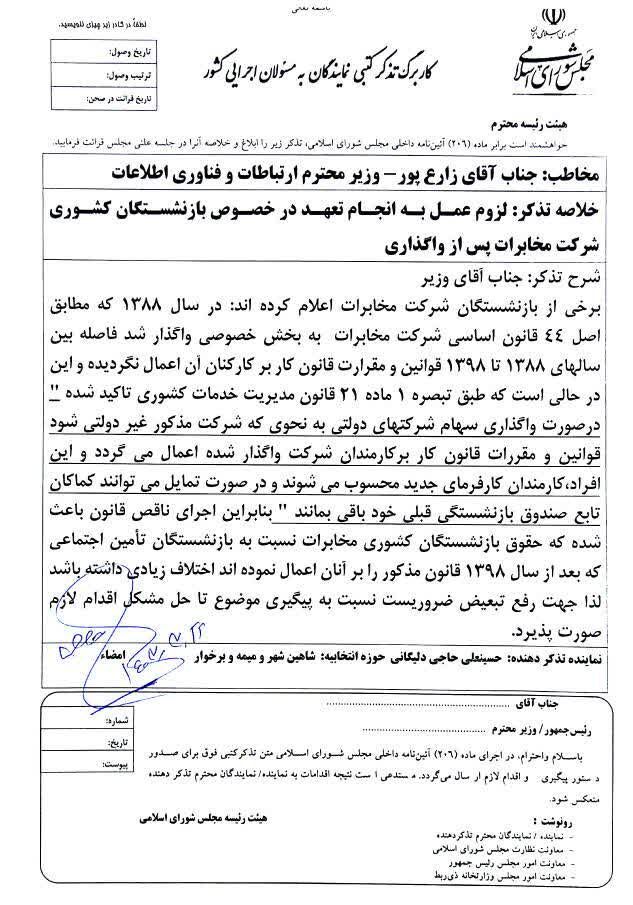 باسمه تعالی
لطفاً در کادر زیر چیزی ننویسید.
جمهوری اسلامی ایران
مجلس شورای اسلامی
کاربرگ تذکر کتبی نمایندگان به مسئولان اجرایی کشور
تاریخ وصول:
ترتیب وصول:
تاریخ قرائت در صحن:
هیئت رئیسه محترم
خواهشمند است برابر ماده (۲۰۶) آئین‌نامه داخلی مجلس شورای اسلامی، تذکر زیر را ابلاغ و خلاصه آنرا در جلسه علنی مجلس قرائت فرمایید.
مخاطب: جناب آقای زارع پور – وزیر محترم ارتباطات و فناوری اطلاعات
خلاصه تذکر: لزوم عمل به انجام تعهد در خصوص بازنشستگان کشوری
شرکت مخابرات پس از واگذاری
شرح تذکر: جناب آقای وزیر
برخی از بازنشستگان شرکت مخابرات اعلام کرده اند: در سال ۱۳۸۸ که مطابق
اصل ۴۴ قانون اساسی شرکت مخابرات به بخش خصوصی واگذار شد فاصله بین
سالهای ۱۳۸۸ تا ۱۳۹۸ قوانین و مقرارت قانون کار بر کارکنان آن اعمال نگردیده و این
در حالی است که طبق تبصره ۱ ماده ۲۱ قانون مدیریت خدمات کشوری تاکید شده "
درصورت واگذاری سهام شرکتهای دولتی به نحوی که شرکت مذکور غیر دولتی شود
قوانین و مقررات قانون کار برکارمندان شرکت واگذار شده اعمال می گردد و این
افراد،کارمندان کارفرمای جدید محسوب می شوند و در صورت تمایل می توانند کماکان
تابع صندوق بازنشستگی قبلی خود باقی بمانند " بنابراین اجرای ناقص قانون باعث
شده که حقوق بازنشستگان کشوری مخابرات نسبت به بازنشستگان تأمین اجتماعی
که بعد از سال ۱۳۹۸ قانون مذکور را بر آنان اعمال نموده اند اختلاف زیادی داشته باشد
لذا جهت رفع تبعیض ضروریست نسبت به پیگیری موضوع تا حل مشکل اقدام لازم
صورت پذیرد.
نماینده تذکر دهنده: حسینعلی حاجی دلیگانی حوزه انتخابیه: شاهین شهر و میمه و برخوار امضاء
جناب آقای ........................................
رئیس‌جمهور/ وزیر محترم ........................................
شماره:
تاریخ:
پیوست:
باسلام واحترام، در اجرای ماده (۲۰۶) آئین‌نامه داخلی مجلس شورای اسلامی متن تذکرکتبی فوق برای صدور
دستور پیگیری و اقدام لازم ارسال می‌گردد. مستدعی است نتیجه اقدامات به نماینده/ نمایندگان محترم تذکر دهنده
منعکس شود.
هیئت رئیسه مجلس شورای اسلامی
رونوشت :
- نماینده / نمایندگان محترم تذکردهنده
- معاونت نظارت مجلس شورای اسلامی
- معاونت امور مجلس رئیس جمهور
- معاونت امور مجلس وزارتخانه ذی‌ربط